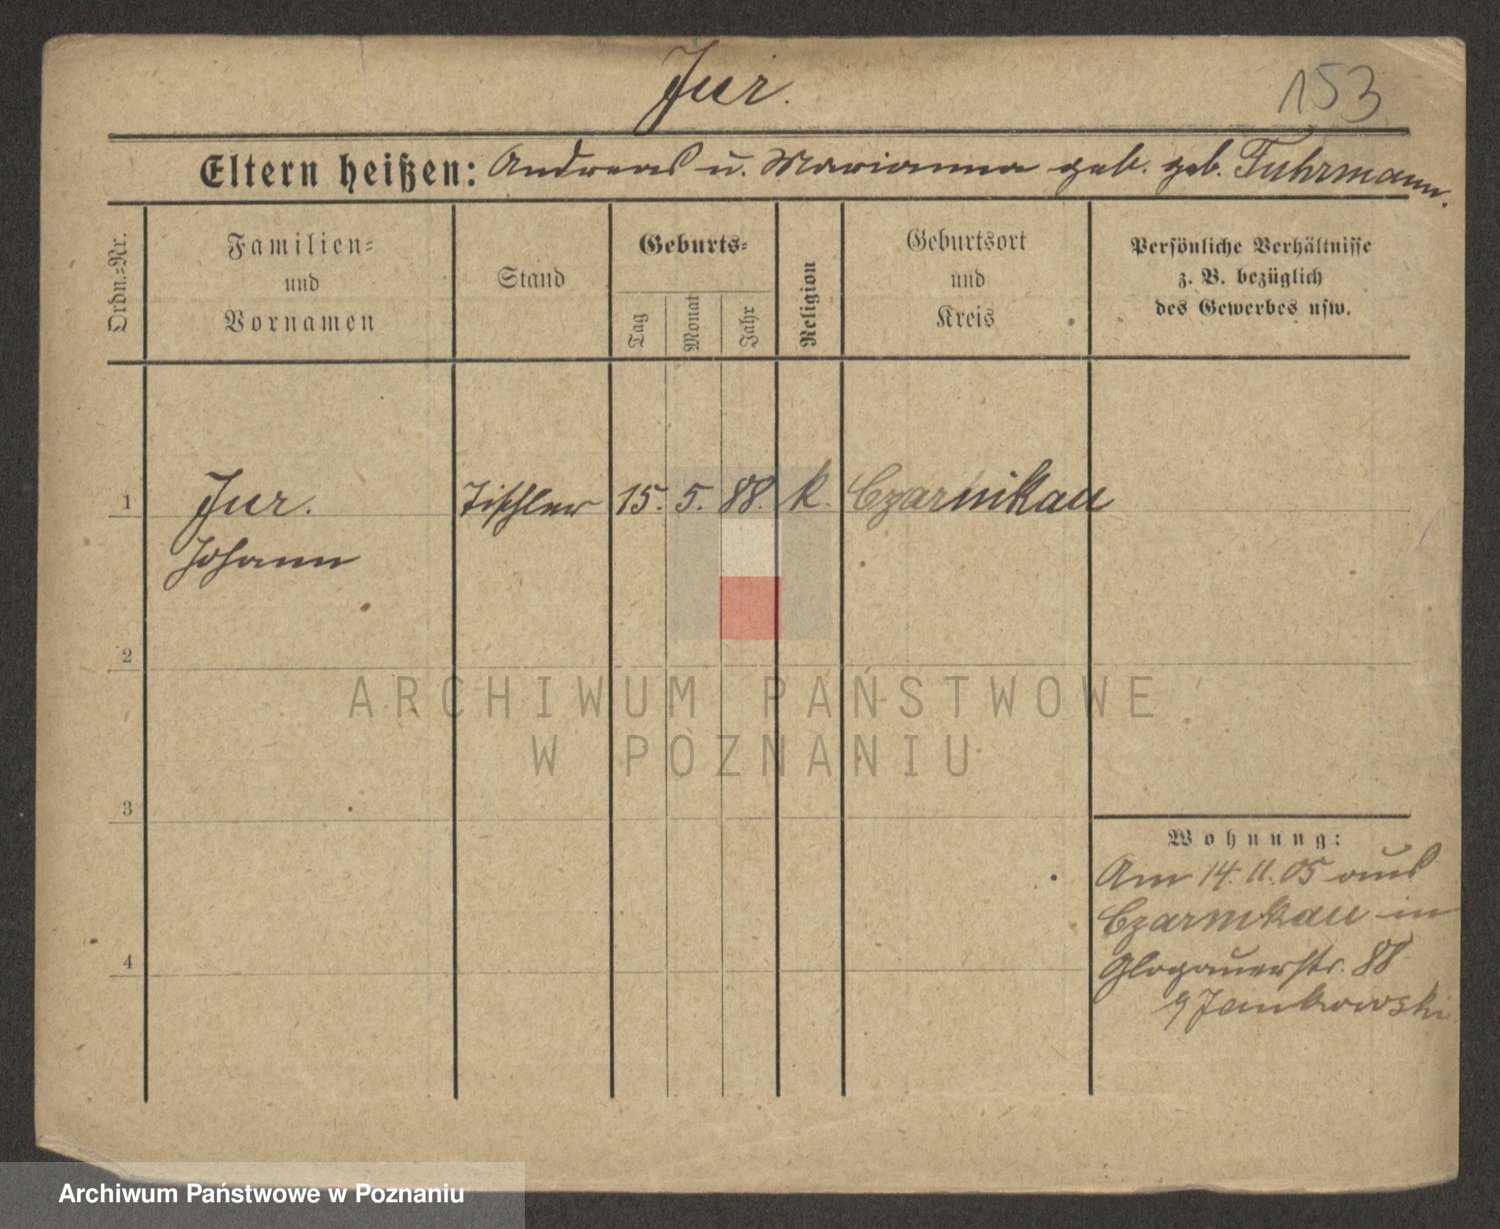 Jur.
153
Eltern heißen: Andreas u. Marianna geb. geb. Fuhrmann.
Ordn.=Nr.
Familien=
und
Vornamen
Stand
Geburts=
Tag
Monat
Jahr
Religion
Geburtsort
und
Kreis
Persönliche Verhältnisse
z. B. bezüglich
des Gewerbes usw.
1 Jur. Tischler 15. 5. 88. k. Czarnikau
Johann
2
ARCHIWUM PAŃSTWOWE
W POZNANIU
3
Wohnung:
Am 14.11.05 aus
Czarnikau in
4 Glogauerstr. 88
Jankowski
Archiwum Państwowe w Poznaniu